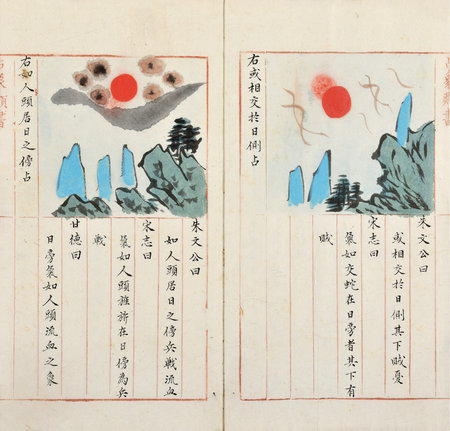 朱文公曰
或相交於日側其下賊憂
宋志曰
氣如交蛇在日旁者其下有
賊
右或相交於日側占
朱文公曰
如人頭居日之傍兵戰流血
宋志曰
氣如人頭在日傍為兵
戰
甘德曰
日旁氣如人頭流血之象
右如人頭居日之傍占
類書